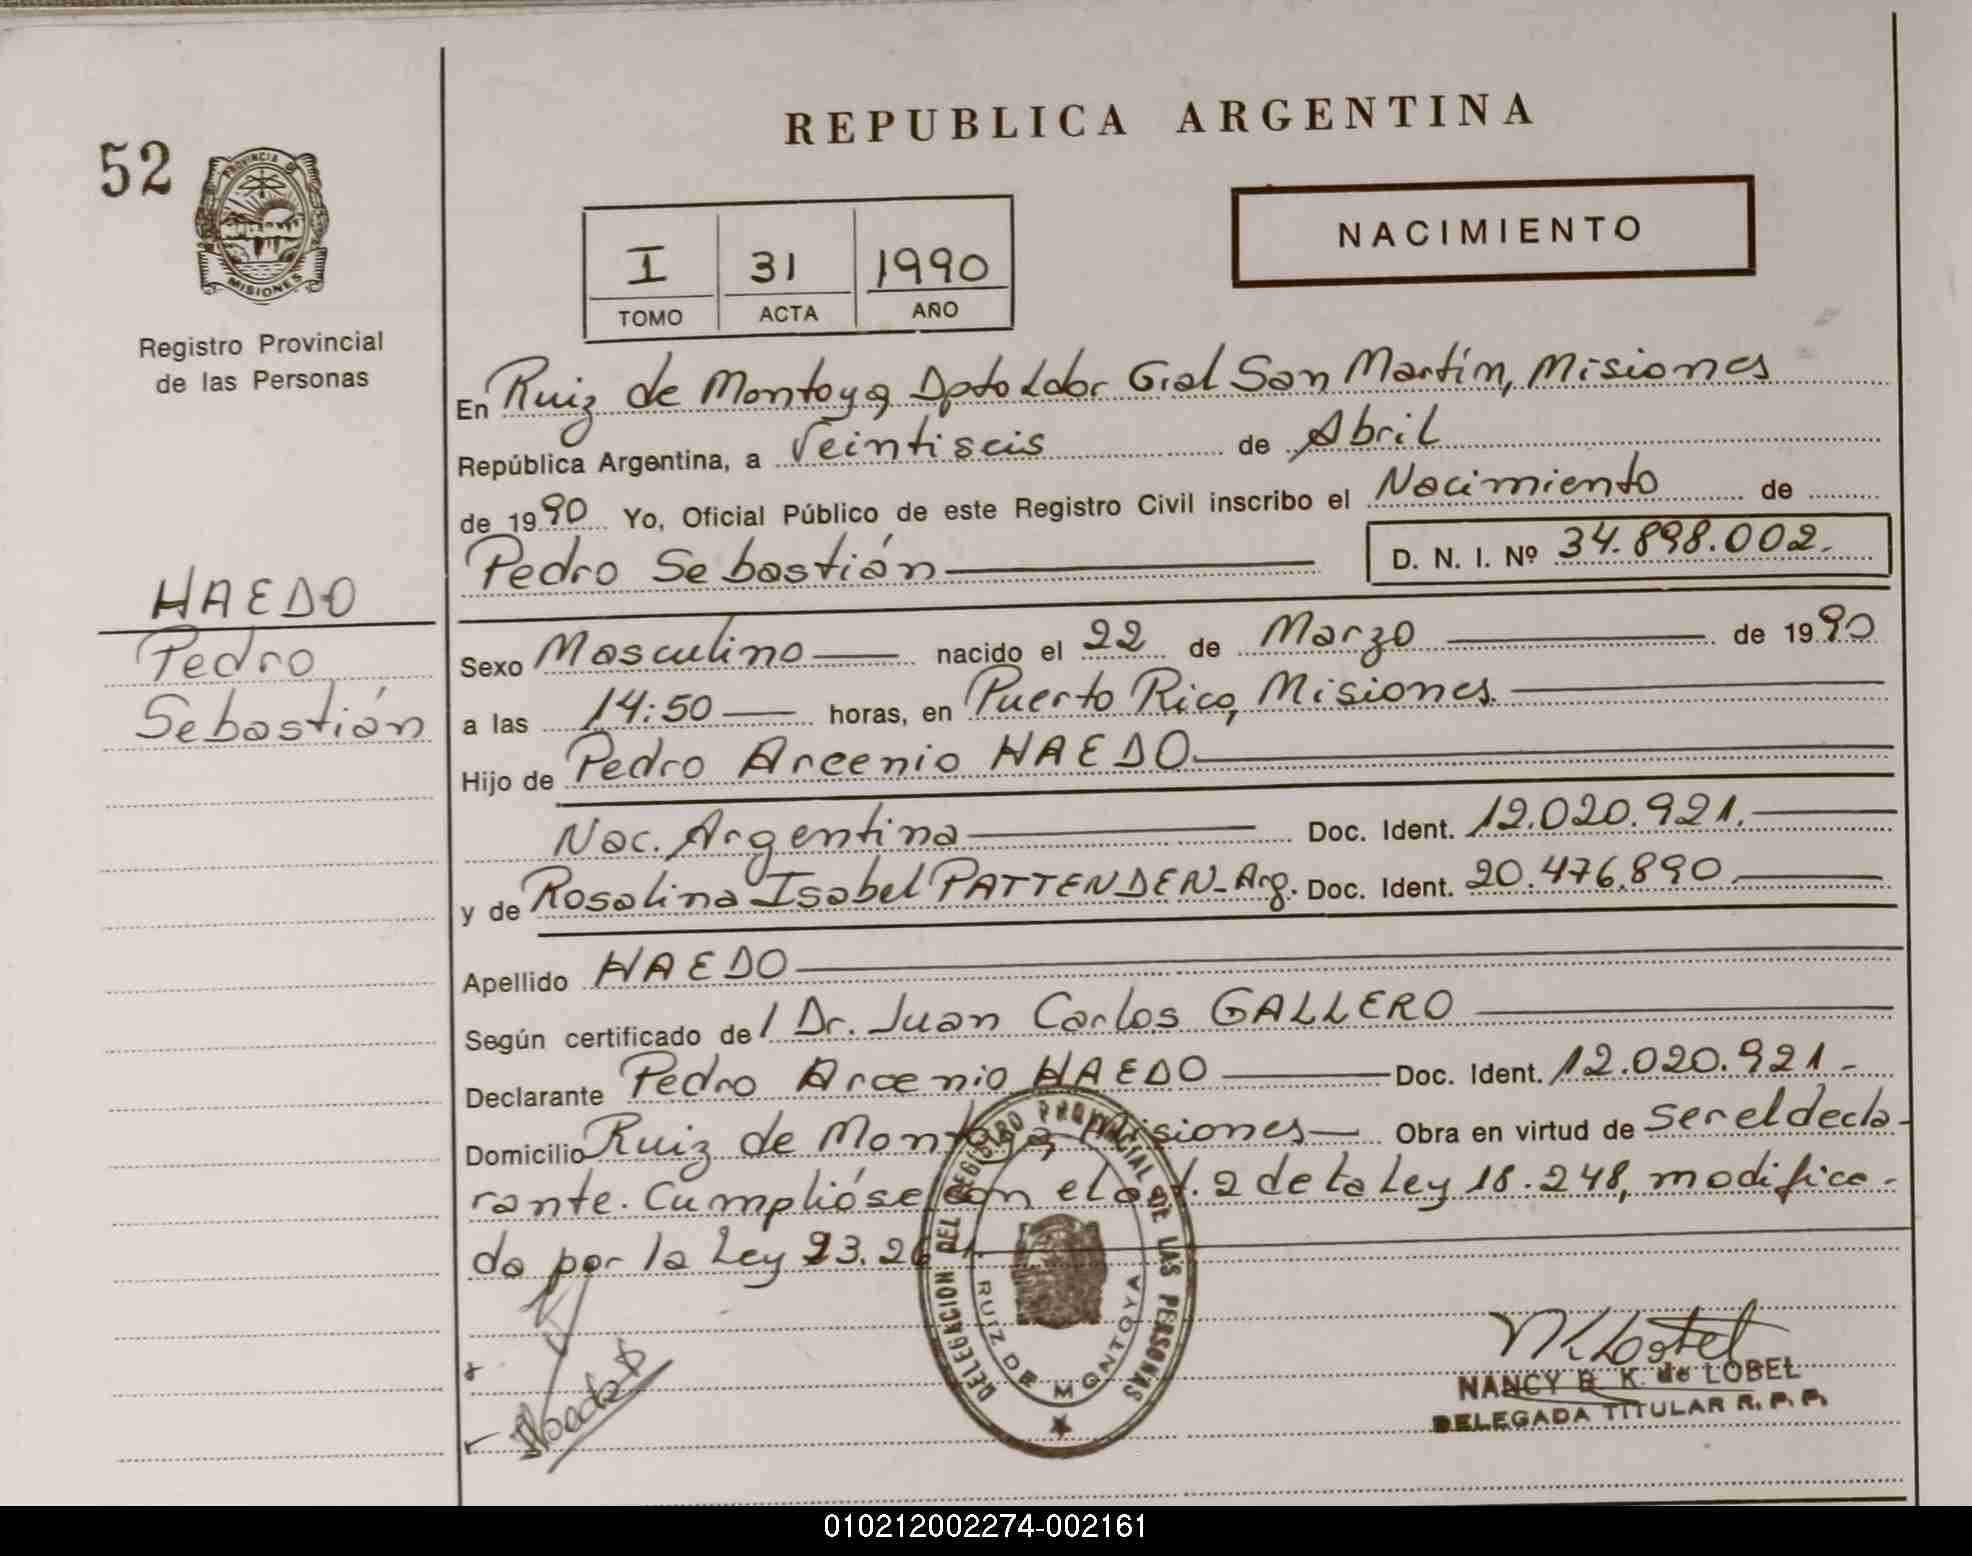 REPUBLICA ARGENTINA
52
PROVINCIA DE
MISIONES
Registro Provincial
de las Personas
NACIMIENTO
I 31 1990
TOMO ACTA AÑO
En Ruiz de Montoya Dpto Ldor Gral San Martín, Misiones
República Argentina, a Veintiseis de Abril
de 1990 Yo, Oficial Público de este Registro Civil inscribo el Nacimiento de
Pedro Sebastián D. N. I. Nº 34.898.002.
HAEDO
Pedro
Sebastián
Sexo Masculino nacido el 22 de Marzo de 1990
a las 14:50 horas, en Puerto Rico, Misiones
Hijo de Pedro Arcenio HAEDO
Nac. Argentina Doc. Ident. 12.020.921.
y de Rosalina Isabel PATTENDEN-Arg. Doc. Ident. 20.476.890
Apellido HAEDO
Según certificado de/ Dr. Juan Carlos GALLERO
Declarante Pedro Arcenio HAEDO Doc. Ident. 12.020.921-
Domicilio Ruiz de Montoya, Misiones Obra en virtud de ser el decla-
rante. Cumplióse con el art. 2 de la Ley 18.248, modifica-
da por la Ley 23.26
DELEGACION DEL REGISTRO PROVINCIAL DE LAS PERSONAS
RUIZ DE MONTOYA
NANCY E. K. de LOBEL
DELEGADA TITULAR R. P. P.
010212002274-002161